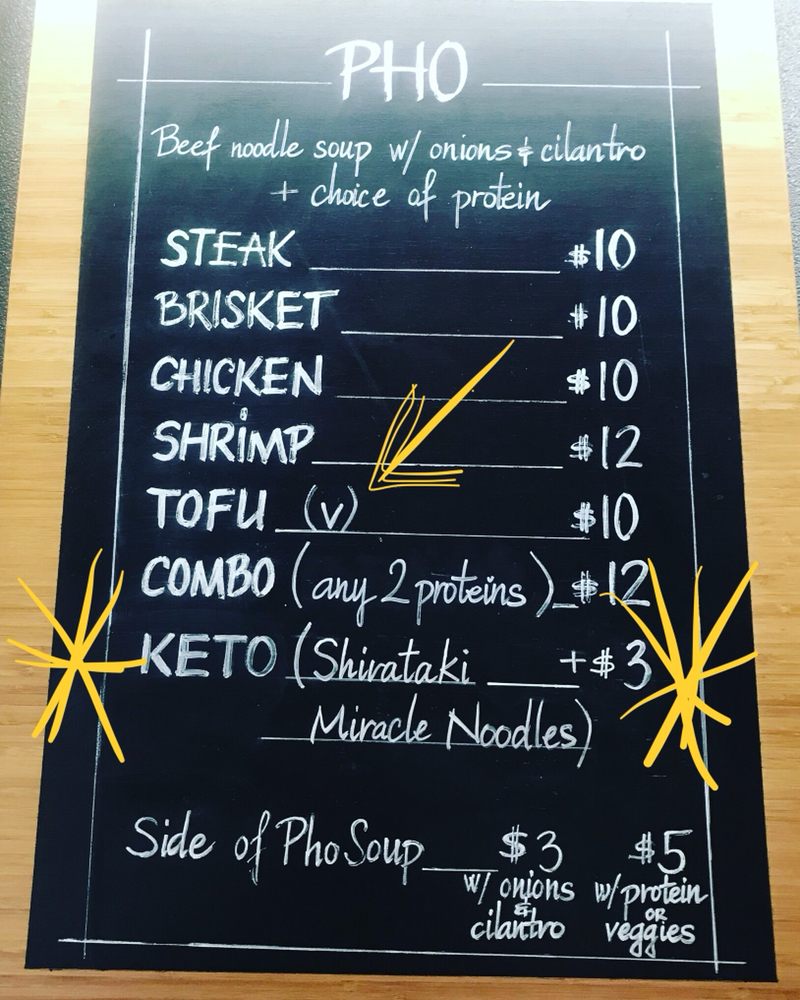 PHO
Beef noodle soup w/ onions & cilantro
+ choice of protein
STEAK $10
BRISKET $10
CHICKEN $10
SHRiMP $12
TOFU (v) $10
COMBO (any 2 proteins) $12
KETO (Shirataki +$3
Miracle Noodles)
Side of Pho Soup $3 $5
w/ onions w/ protein
& or
cilantro veggies